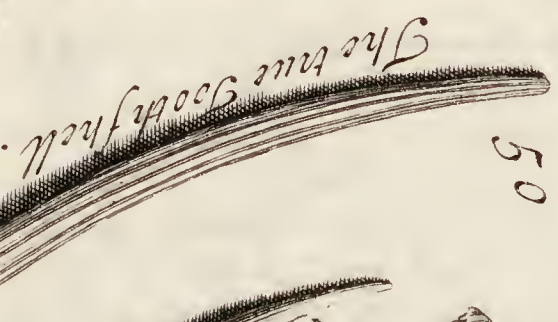 The true Tooth ſhell.
50